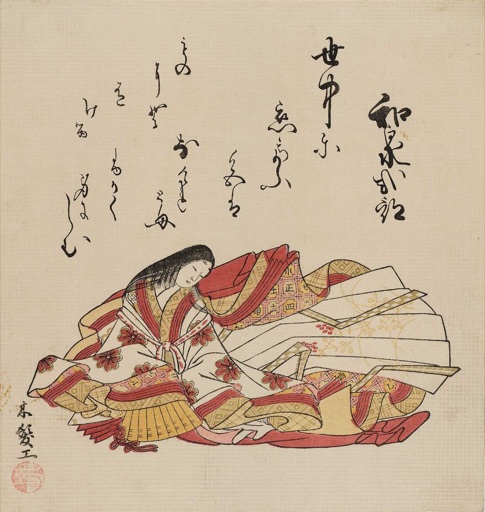 和泉式部
世中尓
恋といふ
色は
なけれとも
ふかく
身にしむ
もの
にそ
有
ける
木髪工